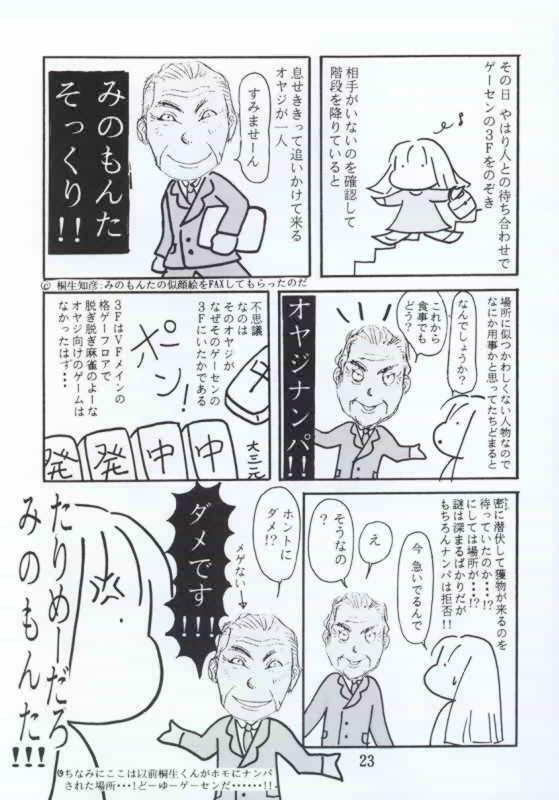 その日 やはり人との待ち合わせで
ゲーセンの3Fをのぞき
相手がいないのを確認して
階段を降りていると
息せききって追いかけて来る
オヤジが一人
すみませーん
みのもんた
そっくり!!
© 桐生知彦:みのもんたの似顔絵をFAXしてもらったのだ
場所に似つかわしくない人物なので
なにか用事かと思ってたちどまると
なんでしょうか?
これから
食事でも
どう?
オヤジナンパ!!
不思議
なのは
なぜそのゲーセンの
そのオヤジが
3Fにいたかである
ポン!
3FはVFメインの
格ゲーフロアで
脱ぎ脱ぎ麻雀のよーな
オヤジ向けのゲームは
なかったはず・・・
中
大三元
発
発
中
中
密に潜伏して獲物が来るのを
待っていたのか・・・!?
にしては場所が・・・!?
謎は深まるばかりだが
もちろんナンパは拒否!!
今 急いでるんで
え
そうなの
?
ホントに
ダメ!?
メゲない→
ダメです!!!
たりめーだろ
みのもんた!!!
ちなみにここは以前桐生くんがホモにナンパ
された場所・・・!どーゆーゲーセンだ・・・・・・!!
23